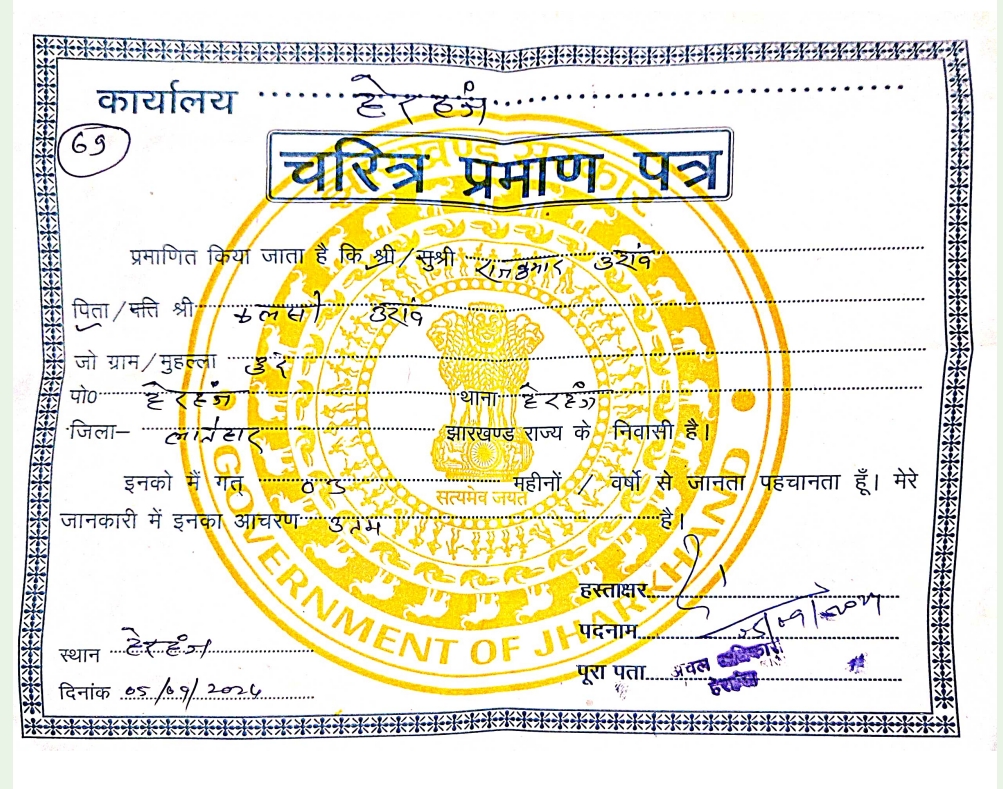 कार्यालय हेरहंज
69
चरित्र प्रमाण पत्र
प्रमाणित किया जाता है कि श्री/सुश्री राजकुमार उरांव
पिता/पति श्री उरांव
जो ग्राम/मुहल्ला
पो० हेरहंज थाना हेरहंज
जिला- लातेहार झारखण्ड राज्य के निवासी है।
इनको मैं गत् महीनों / वर्षो से जानता पहचानता हूँ। मेरे
जानकारी में इनका आचरण उतम है।
सत्यमेव जयते
GOVERNMENT OF JHARKHAND
हस्ताक्षर
पदनाम
स्थान हेरहंज
पूरा पता अंचल अधिकारी
हेरहंज
दिनांक 05/09/2024